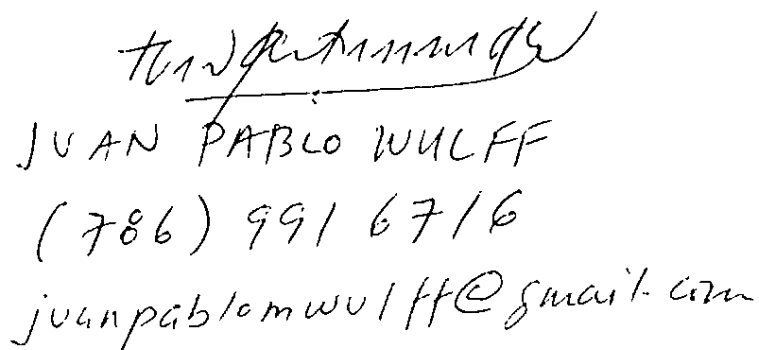 JUAN PABLO WULFF
(786) 991 6716
juanpablomwulff@gmail.com